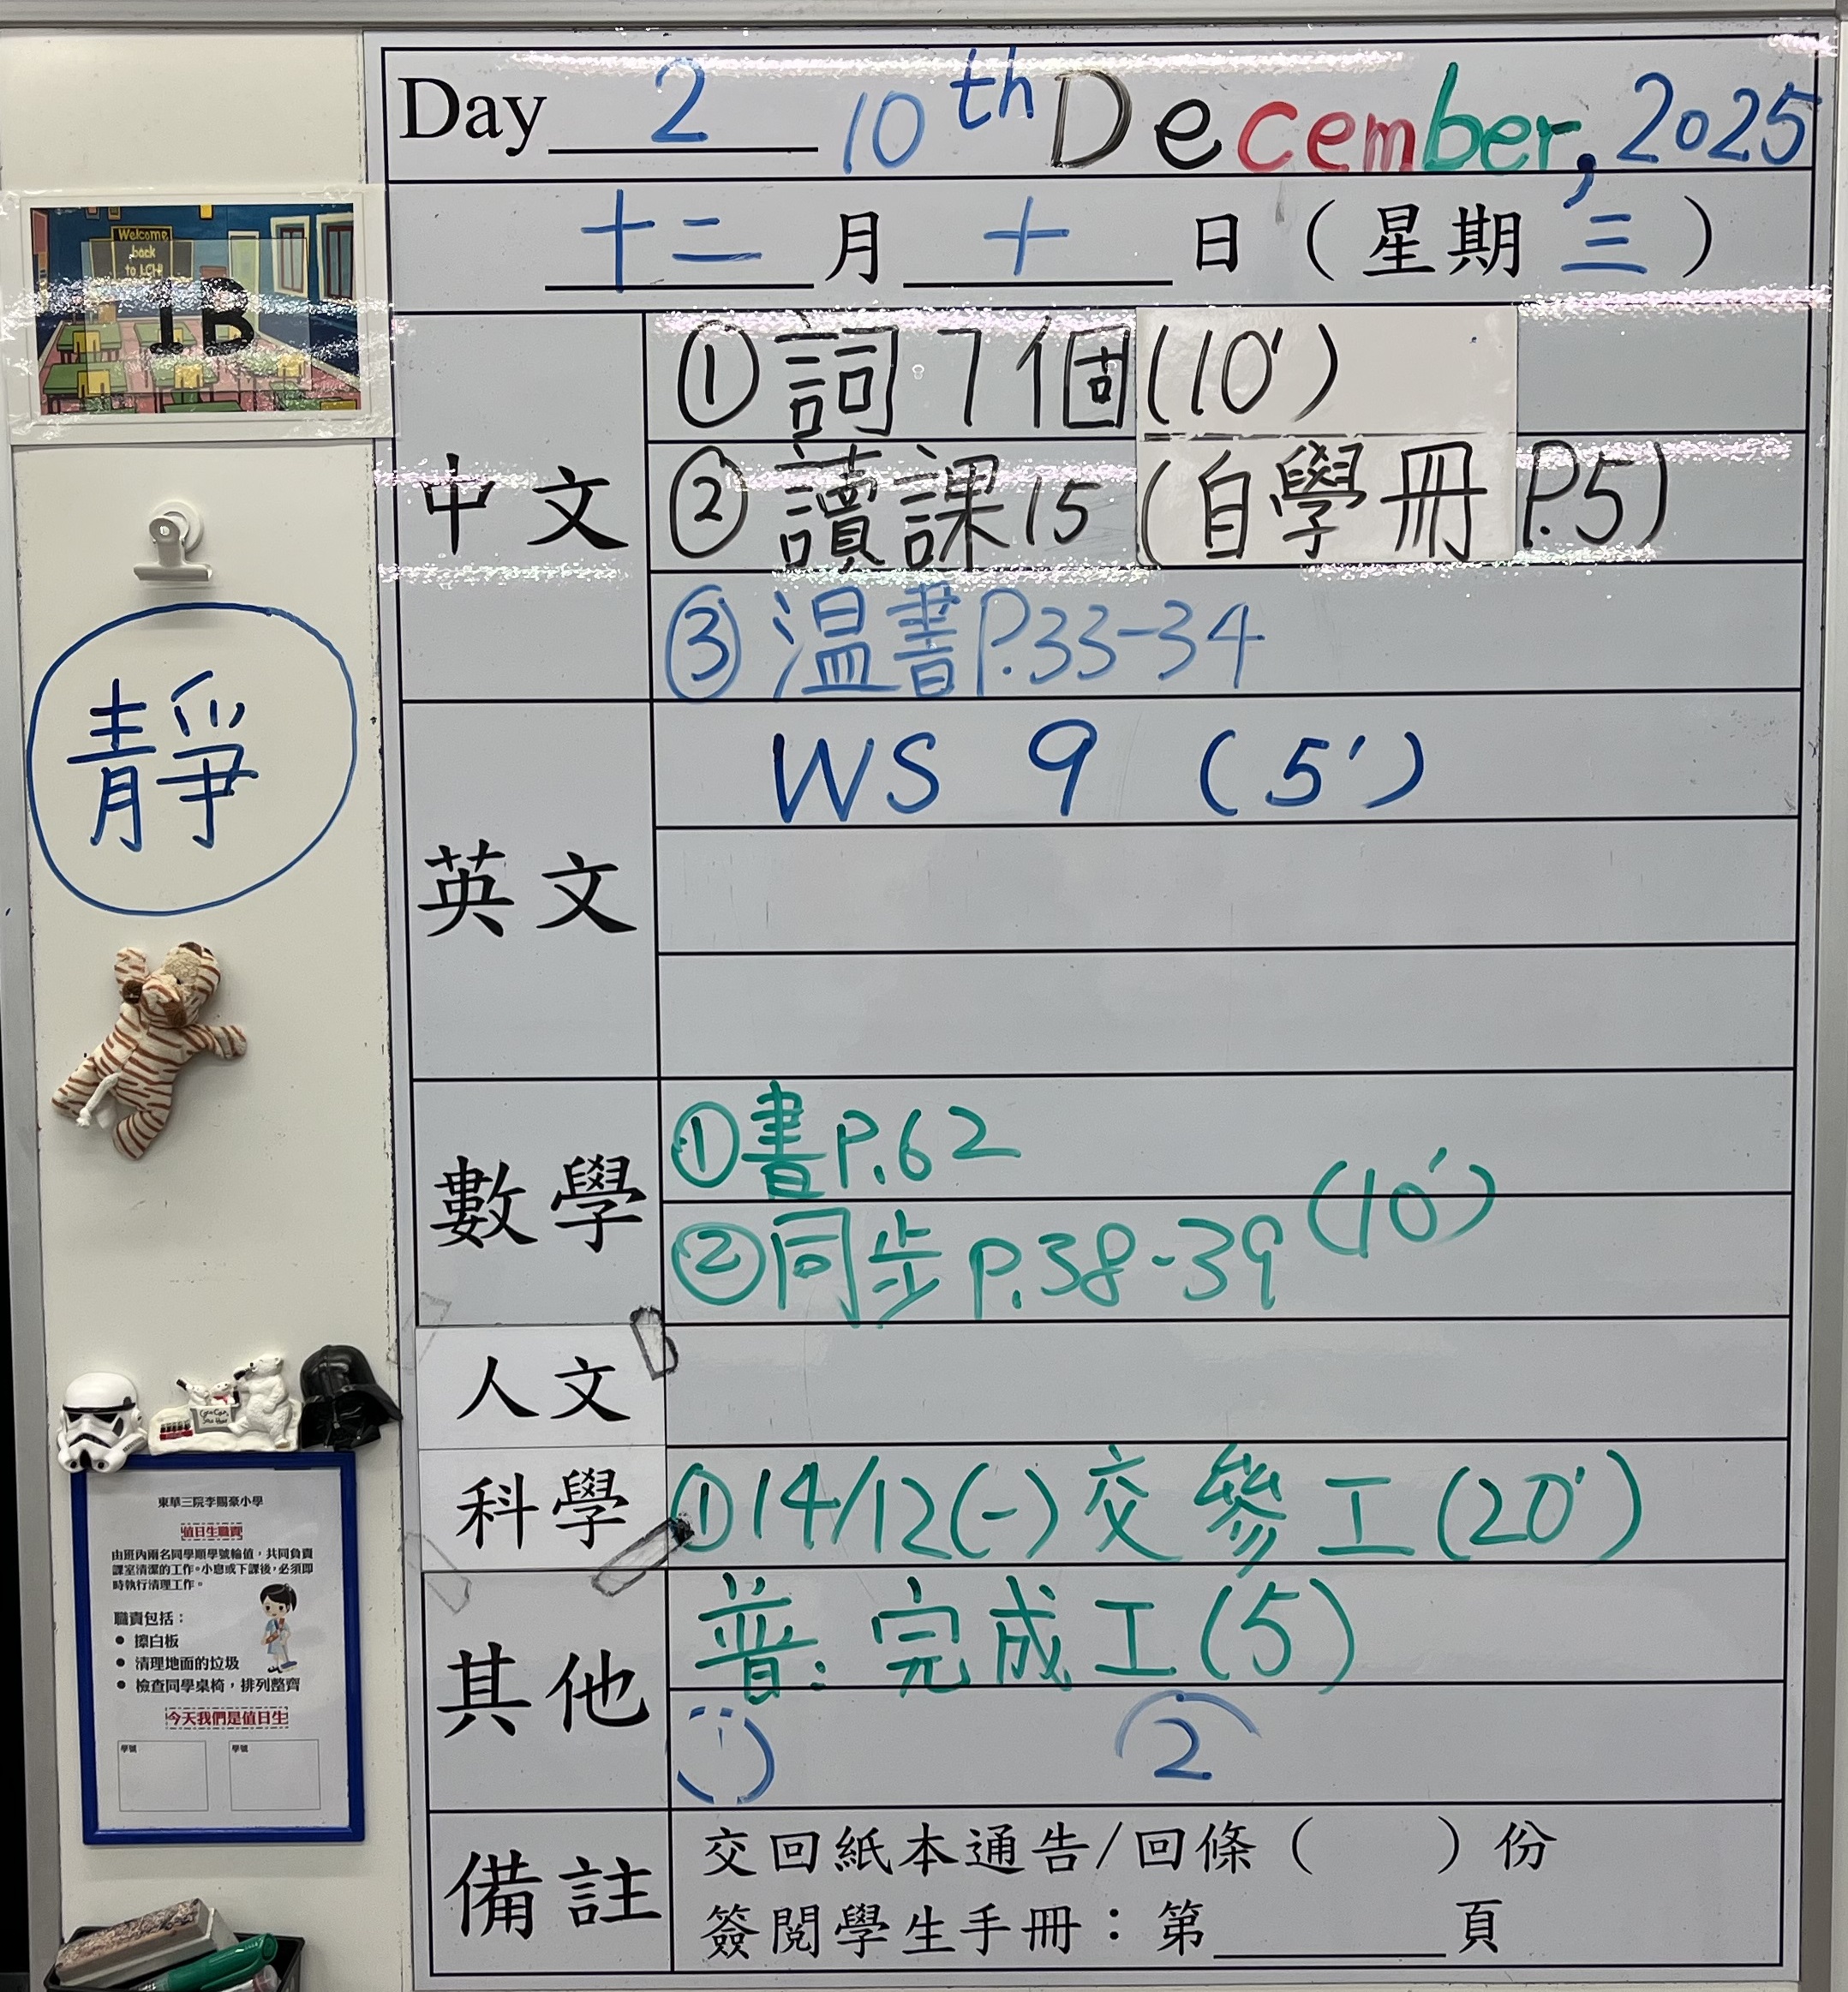 Day 2 10th December, 2025
十二 月 十 日 ( 星期 三 )
Welcome
back
to LCH!
1B
中文
① 詞 7 個 (10')
② 讀課 15 (自學冊 P.5)
③ 溫書 P.33-34
靜
英文
WS 9 (5')
數學
① 書 P.62
② 同步 P.38-39 (10')
人文
科學
① 14/12(一) 交參工 (20')
其他
普: 完成工 (5)
2
備註
交回紙本通告/回條 ( ) 份
簽閱學生手冊：第______頁
東華三院李賜豪小學
值日生職責
由班內兩名同學順學號輪值，共同負責
課室清潔的工作。小息或下課後，必須即
時執行清理工作。
職責包括：
• 擦白板
• 清理地面的垃圾
• 檢查同學桌椅，排列整齊
今天我們是值日生
學號 學號